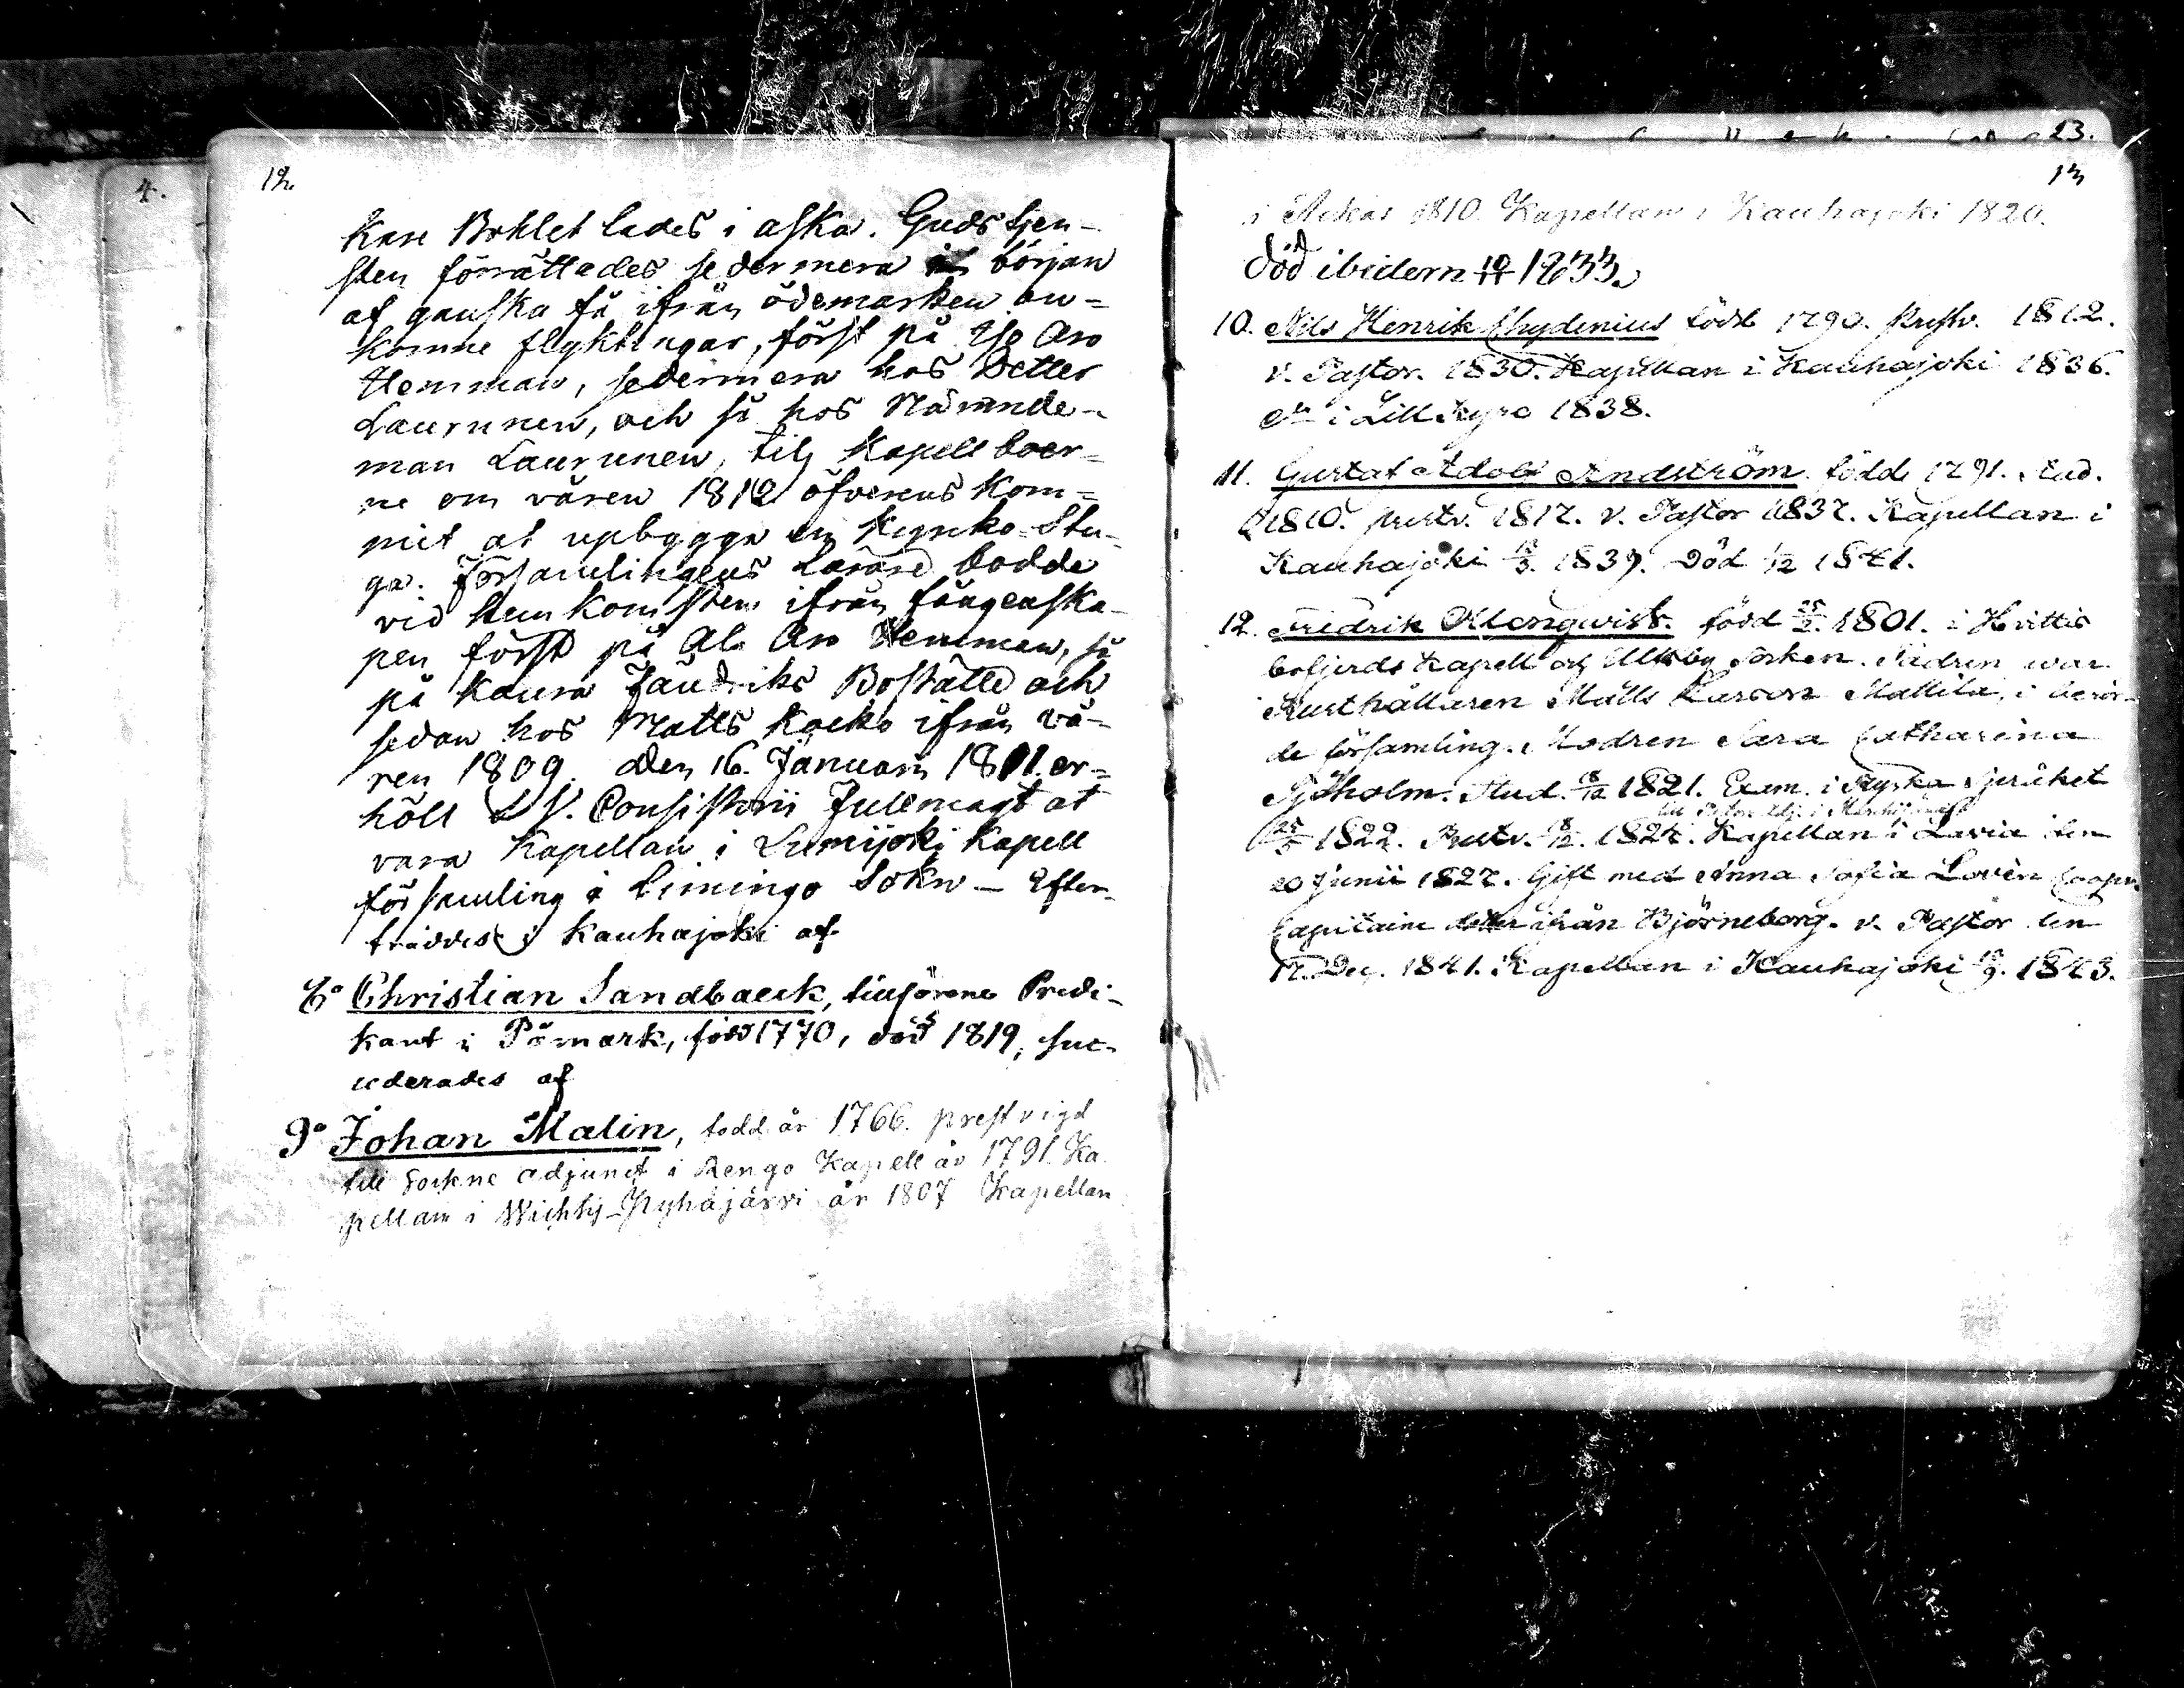 4.
12.
kare Bohlet lades i aska. Gudstjen-
sten förrättades sedermera i början
af ganska få ifrån ödemarken an-
komne flyktingar, först på Yli Aro
Hemman, sedermera hos Detter
Laurunen, och så hos Nämnde-
man Laurunen, tils Kapellboer-
ne om våren 1812 öfverens kom-
mit at upbygga en Kyrko-Stu-
ga. Församlingens Lärare bodde
vid hemkomsten ifrån fångenska-
pen först på Ala Aro Hemman, så
på Kaura Jaudriks Boställe och
sedan hos Matts Kocko ifrån vå-
ren 1809. Den 16. Januarii 1811. er-
höll L V. Consistorii Fullmagt at
vara Kapellan i Lumijoki Kapell
församling i Limingo Sokn - Efter-
träddes i Kauhajoki af
8° Christian Sandbaeck, tillförene Predi-
kant i Påmark, född 1770, död 1819, suc-
cederades af
9° Johan Malin, född år 1766. prestvigd
till Sockne adjunct i Rengo Kapell år 1791. Ka-
pellan i Wichtij-Pyhäjärvi år 1807 Kapellan
23.
13
i 1810. Kapellan i Kauhajoki 1820.
Död ibidem 10/11 1833.
10. Nils Henrik Chydenius född 1790. Prestv. 1812.
v. Pastor. 1830. Kapellan i Kauhajoki 1836.
i Lill Kyro 1838.
11. Gustaf Adolf Andström född 1791. Stud.
1810. prestv. 1817. v. Pastor 1837. Kapellan i
Kauhajoki 1839. Död 1/12 1841.
12. Fredrik Klonqvist. född 25/2. 1801. i Hvittis
bofjerds Kapell och Ulfsby Socken. Fadren war
Rusthållaren Matts Larsson Mattila, i berör-
de församling. Modren Sara Catharina
Sjöholm. Stud. 18/12 1821. Exam. i Ryska Språket
25/5 1822. Prestv. 18/12. 1824. Kapellan i Lavia den
20 Junii 1827. Gift med Anna Sofia Lovén
Capitaine dotter ifrån Björneborg. v. Pastor den
17. Dec. 1841. Kapellan i Kauhajoki 1843.